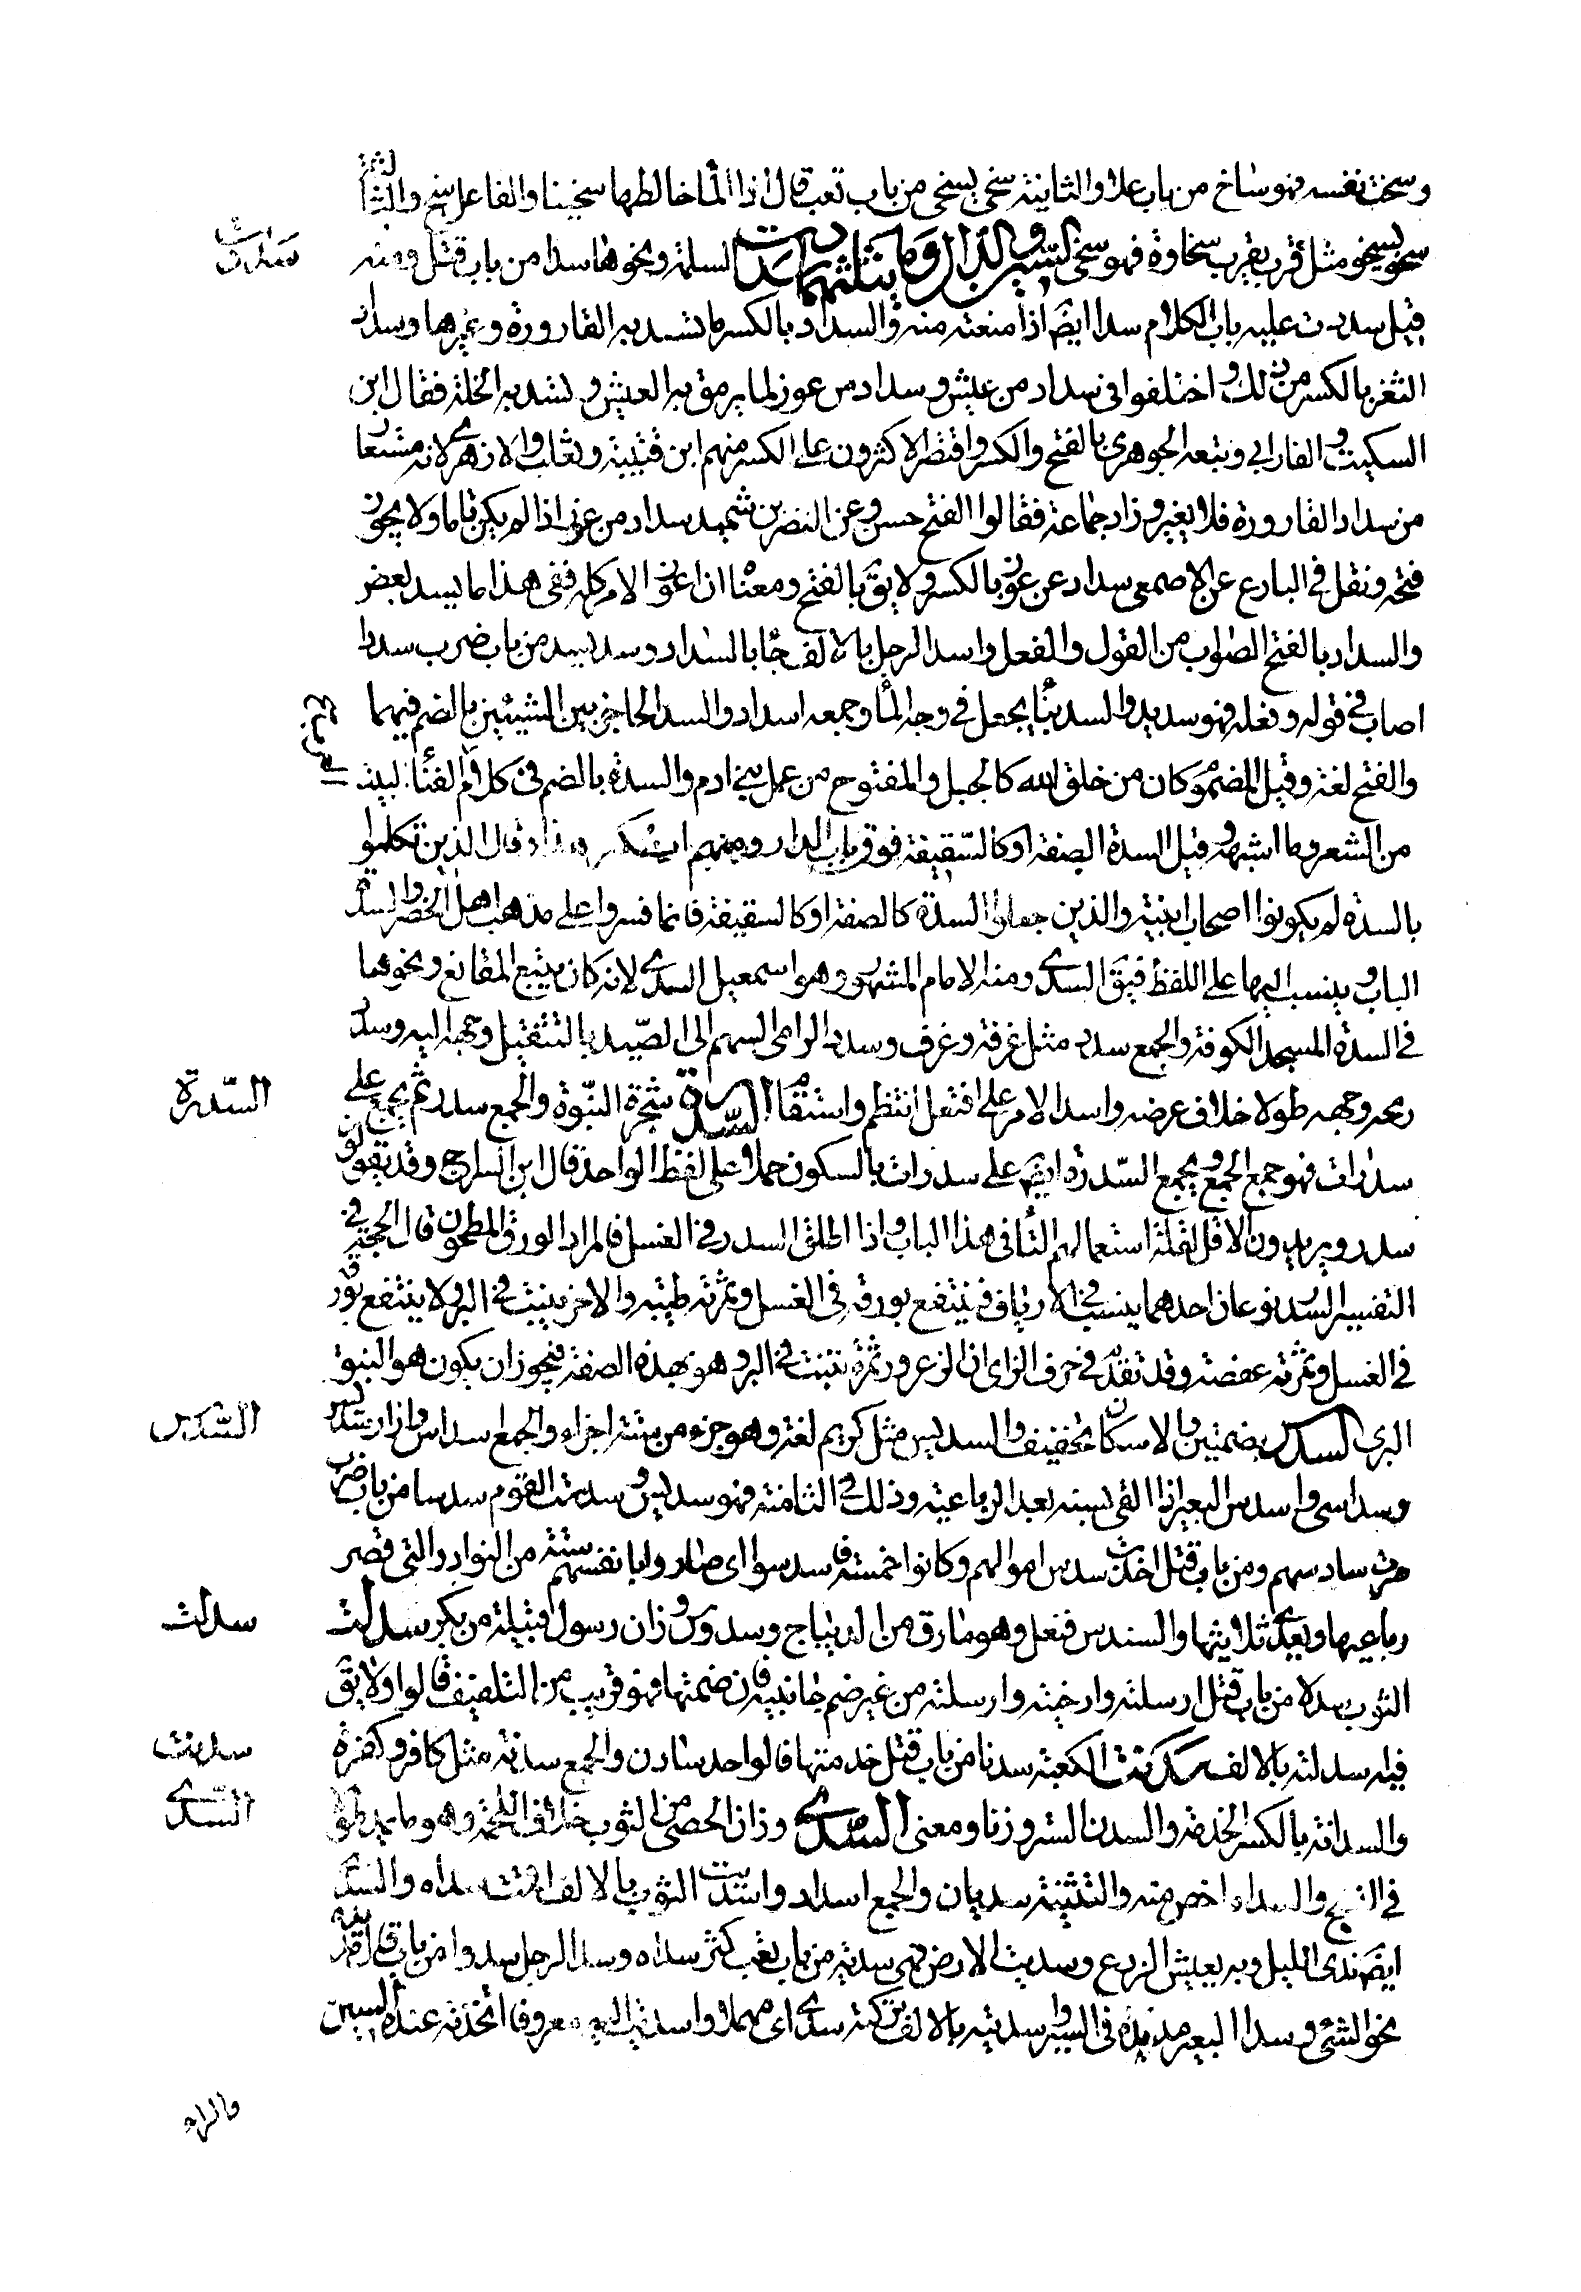 وسخت نفسه فهو ساخ من باب علا والثانية سخي يسخى من باب تعب قال اذا الما خالطها سخينا والفاعل سخ والثالثة
سخو يسخو مثل قرب يقرب سخاوة فهو سخي السين والدال وما يثلثهما سددت الثلمة ونحوها سدا من باب قتل ومنه
سددت
قيل سددت عليه باب الكلام سدا ايضا اذا منعته منه والسداد بالكسر ما تسد به القارورة وغيرها وسداد
الثغر بالكسر من ذلك واختلفوا في سداد من عيش وسداد من عوز لما يرمق به العيش وتسد به الخلة فقال ابن
السكيت والفارابي وتبعه الجوهري بالفتح والكسر واقتصر الاكثرون على الكسر منهم ابن قتيبة وثعلب والازهري لانه مستعار
من سداد القارورة فلا يغير وزاد جماعة فقالوا الفتح حسن وعن النضر بن شميل سداد من عوز اذا لم يكن تاما ولا يجوز
فتحه ونقل في البارع عن الاصمعي سداد من عوز بالكسر ولا يق بالفتح ومعناه ان اعوز الامر كله ففي هذا ما يسد بعض
والسداد بالفتح الصواب من القول والفعل واسد الرجل بالالف جا بالسداد وسد يسد من باب ضرب سدودا
اصاب في قوله وفعله فهو سديد والسد بنا يجعل في وجه الما وجمعه اسداد والسد الحاجز بين الشيئين بالضم فيهما
والفتح لغة وقيل المضموم ما كان من خلق الله كالجبل والمفتوح من عمل بني ادم والسدة بالضم في كلام العرب الفنا لبيت
من الشعر وما اشبهه وقيل السدة الصفة او كالسقيفة فوق باب الدار ومنهم من انكر هذا وقال الذين تكلموا
بالسدة لم يكونوا اصحاب ابنية والذين جعلوا السدة كالصفة او كالسقيفة فانما فسروا على مذهب اهل الحضر والسدة
الباب وينسب اليها على اللفظ فيق السدي ومنه الامام المشهور وهو اسمعيل السدي لانه كان يبيع المقانع ونحوها
في السدة المسجد الكوفة والجمع سدد مثل غرفة وغرف وسدد الرامي السهم الى الصيد بالتثقيل وجهه اليه وسدد
رمحه وجهه طولا خلاف عرضه واستد الامر على افتعل انتظم واستقام السدرة شجرة النبق والجمع سدر ثم يجمع على
السدرة
سدرات فهو جمع الجمع ويجمع السدرة ايضا على سدرات بالسكون حملا على لفظ الواحد قال ابن السراج وقد يقولون
سدر ويريدون الاقل لقلة استعمالهم التا في هذا الباب واذا اطلق السدر في الغسل فالمراد الورق المطحون قال الحجة في
التفسير السدر نوعان احدهما ينبت في الارياف فينتفع بورقه في الغسل وثمرته طيبة والاخر ينبت في البر ولا ينتفع بورقه
في الغسل وثمرته عفصة وقد تقدم في حرف الزاي ان الزعرور ثمرة تنبت في البر وهو بهذه الصفة فيجوز ان يكون هو النبق
البري السدس بضمتين والاسكان تخفيف والسديس مثل كريم لغة وهو جزء من ستة اجزاء والجمع اسداس وازار سديس
السدس
وسداسي واسدس البعير اذا القى سنه بعد الرباعية وذلك في الثامنة فهو سديس وسدست القوم سدسا من باب ضرب
صرت سادسهم ومن باب قتل اخذت سدس اموالهم وكانوا خمسة فاسدسوا اي صاروا بانفسهم ستة من النوادر التي قصر
رباعيها وتعدى ثلاثيها والسندس فنعل وهو ما رق من الديباج وسدوس وزان رسول قبيلة من بكر سدلت
سدلت
الثوب سدلا من باب قتل ارسلته وارخيته وارسلته من غير ضم جانبيه فان ضمتها فهو قريب من التلفيف قالوا ولا يق
فيه اسدلته بالالف سدنت الكعبة سدنا من باب قتل خدمتها فالواحد سادن والجمع سدنة مثل كافر وكفرة
سدنت
والسدانة بالكسر الخدمة والسدن الستر وزنا ومعنى السدى وزان الحصى من الثوب خلاف اللحمة وهو ما يمد طولا
السدى
في النسج والسداة اخص منه والتثنية سديان والجمع اسداء واسديت الثوب بالالف اقمت سداه والسدى
ايضا ندى الليل وبه يعيش الزرع وسديت الارض فهي سدية من باب تعب كثر سداها وسدا الرجل سدوا من باب قتل مد يده
نحو الشئ وسدا البعير مد يده في السير واسديته بالالف تركته سدى اي مهملا واسديت اليه معروفا اتخذته عنده السين
والراء